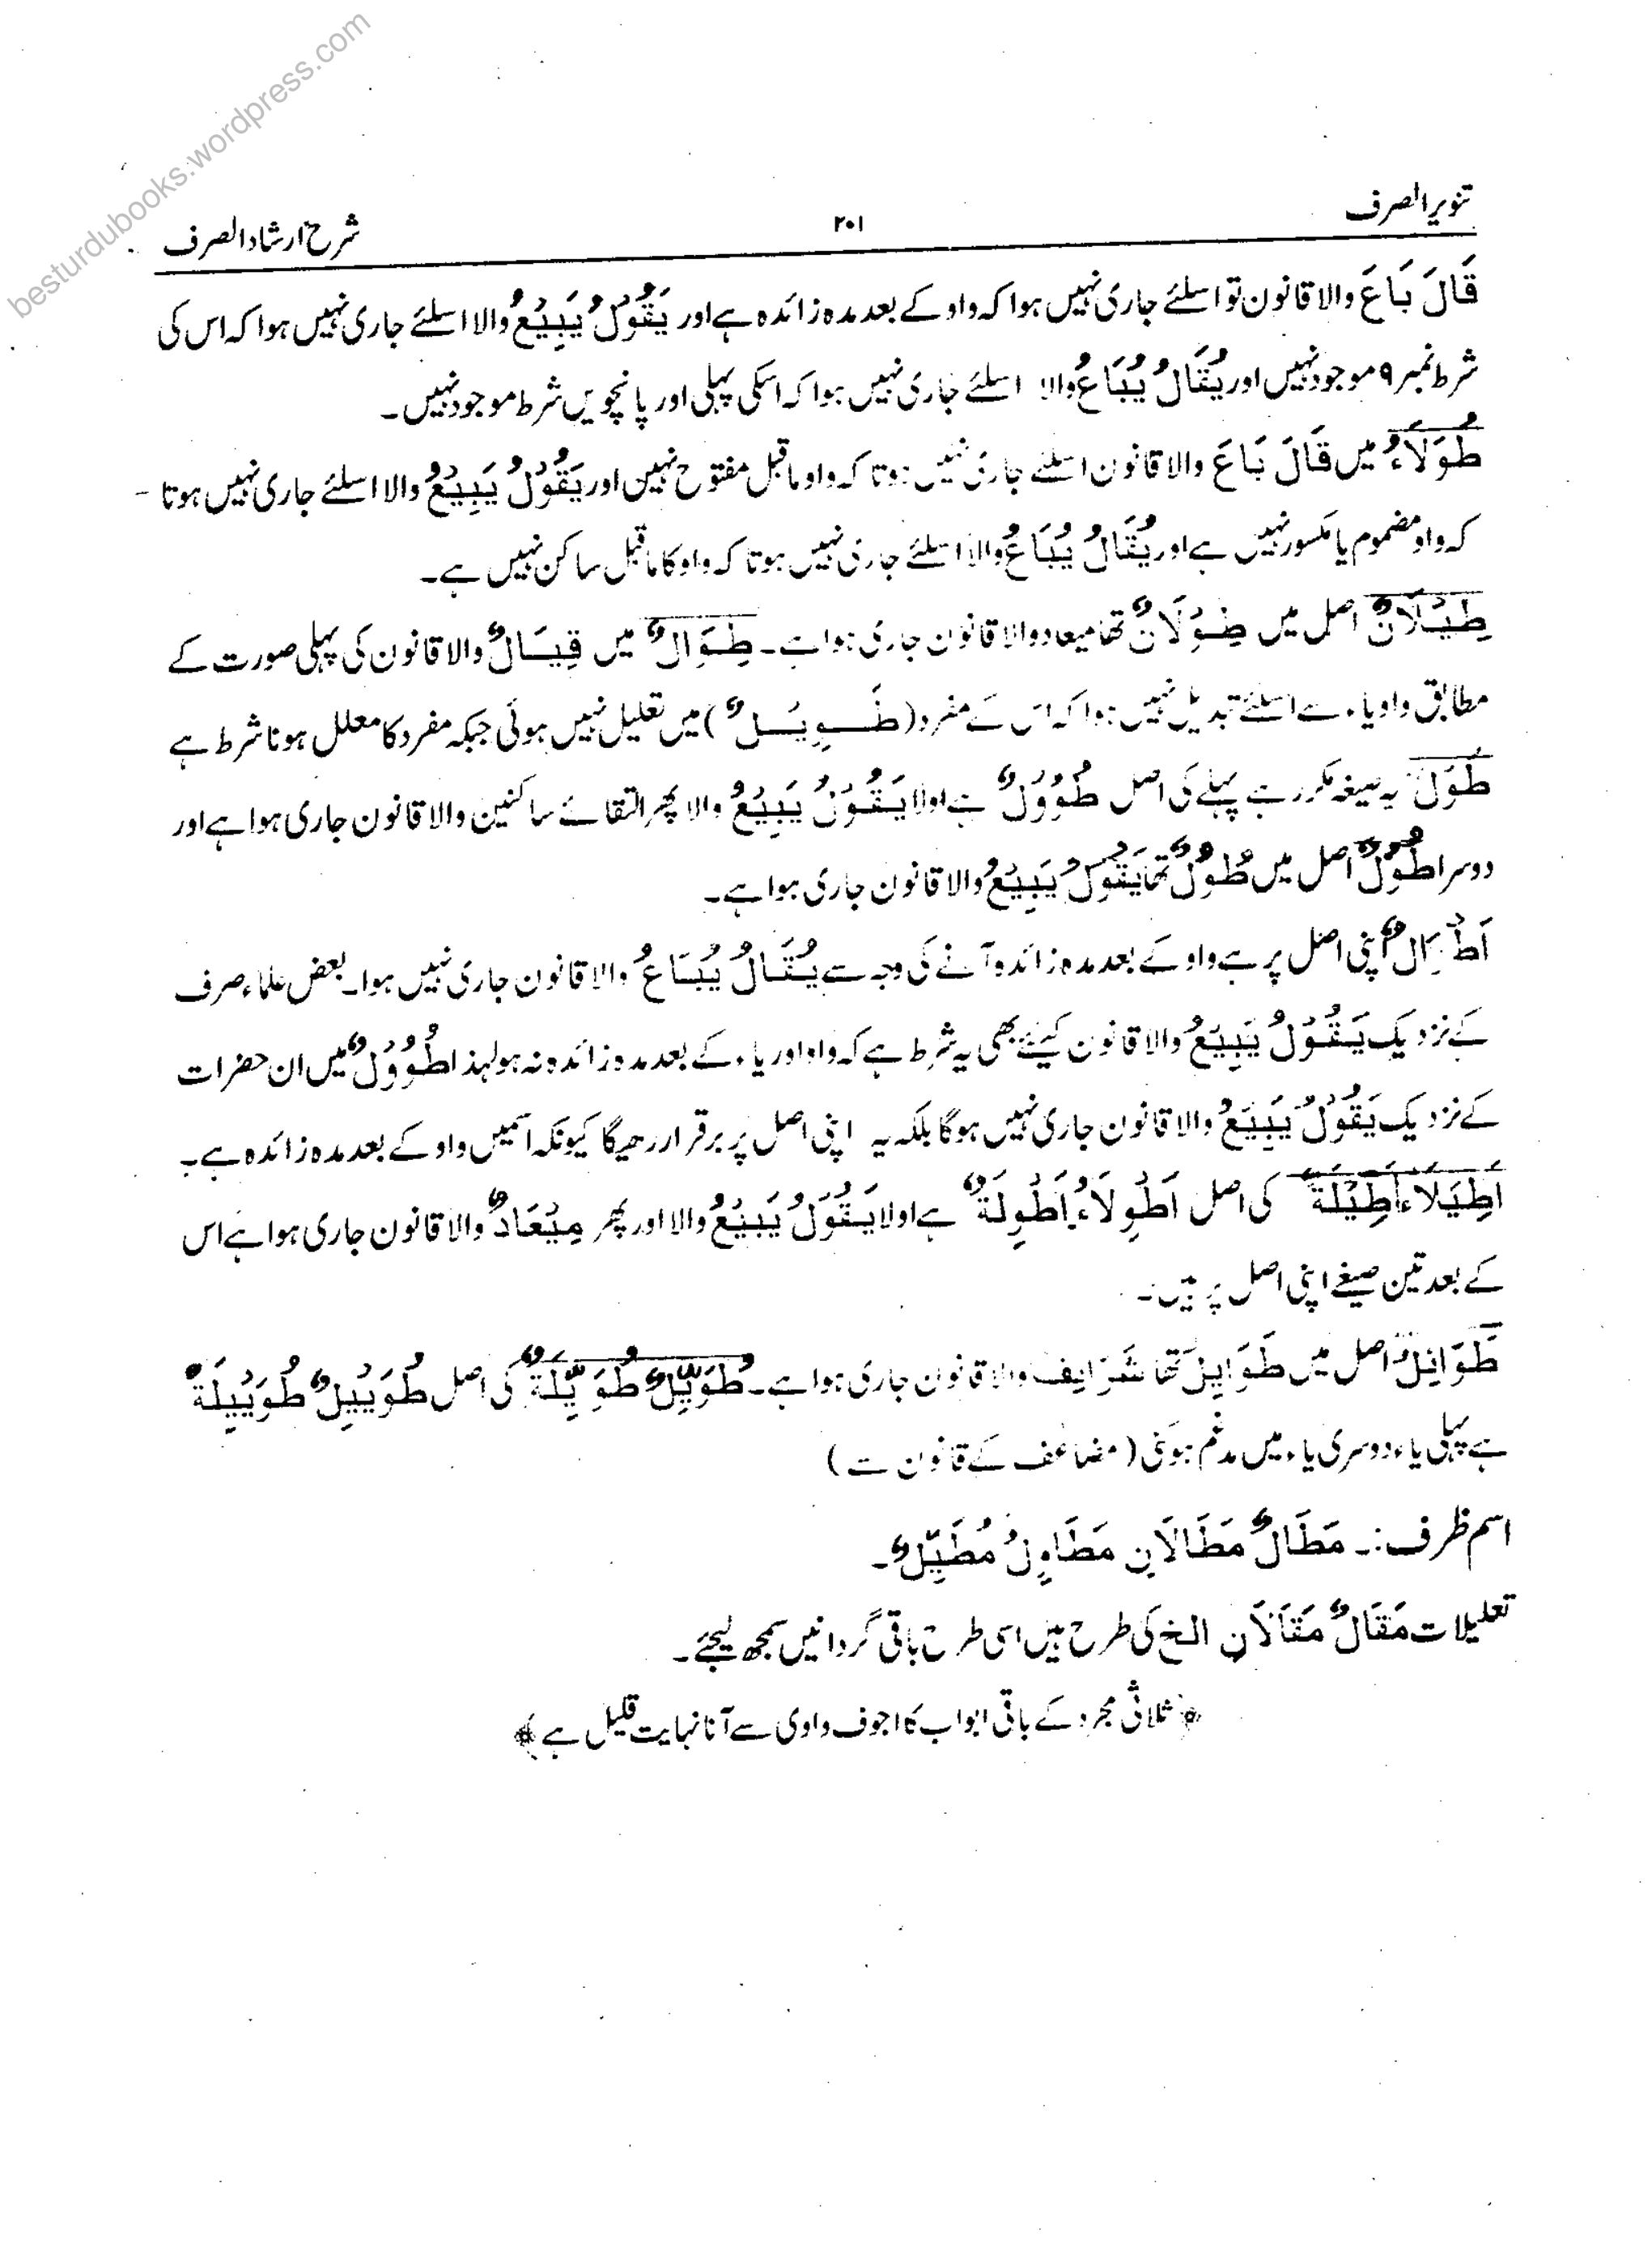 besturdubooks.wordpress.com
تنویر الصرف ۲۰۱ شرح ارشاد الصرف
قَالَ بَاعَ والا قانون تو اسلئے جاری نہیں ہوا کہ واو کے بعد مدہ زائدہ ہے اور يَقُوْلُ يَبِيْعُ والا اسلئے جاری نہیں ہوا کہ اس کی
شرط نمبر ۹ موجود نہیں اور يُقَالُ يُبَاعُ والا اسلئے جاری نہیں ہوا کہ اسکی پہلی اور پانچویں شرط موجود نہیں۔
طُوَلَاءُ میں قَالَ بَاعَ والا قانون اسلئے جاری نہیں ہوتا کہ واو ماقبل مفتوح نہیں اور يَقُوْلُ يَبِيْعُ والا اسلئے جاری نہیں ہوتا -
کہ واو مضموم یا مکسور نہیں ہے اور يُقَالُ يُبَاعُ والا اسلئے جاری نہیں ہوتا کہ واو کا ماقبل ساکن نہیں ہے۔
طِيْلَانٌ اصل میں طِوْلَانٌ تھا میعاد والا قانون جاری ہوا ہے۔ طِوَالٌ میں قِيَالٌ والا قانون کی پہلی صورت کے
مطابق واو یاء سے اسلئے تبدیل نہیں ہوا کہ اس کے مفرد (طَوِيْلٌ) میں تعلیل نہیں ہوئی جبکہ مفرد کا معلل ہونا شرط ہے
طُوْلٌ یہ صیغہ مکرر ہے پہلے کی اصل طُوُوْلٌ ہے اولا يَقُوْلُ يَبِيْعُ والا پھر التقائے ساکنین والا قانون جاری ہوا ہے اور
دوسرا طُوْلٌ اصل میں طُوُلٌ تھا يَقُوْلُ يَبِيْعُ والا قانون جاری ہوا ہے۔
اَطْوَالٌ اپنی اصل پر ہے واو کے بعد مدہ زائدہ آنے کی وجہ سے يُقَالُ يُبَاعُ والا قانون جاری نہیں ہوا۔ بعض علماء صرف
کے نزدیک يَقُوْلُ يَبِيْعُ والا قانون کیلئے بھی یہ شرط ہے کہ واو اور یاء کے بعد مدہ زائدہ نہ ہو لہذا طُوُوْلٌ میں ان حضرات
کے نزدیک يَقُوْلُ يَبِيْعُ والا قانون جاری نہیں ہوگا بلکہ یہ اپنی اصل پر برقرار رھیگا کیونکہ اسمیں واو کے بعد مدہ زائدہ ہے۔
اَطِيْلَاءُ اَطِيْلَةٌ کی اصل اَطْوِلَاءُ اَطْوِلَةٌ ہے اولا يَقُوْلُ يَبِيْعُ والا اور پھر مِيْعَادٌ والا قانون جاری ہوا ہے اس
کے بعد تین صیغے اپنی اصل پر ہیں۔
طَوَائِلُ اصل میں طَوَايِلُ تھا شَرَايِفُ والا قانون جاری ہوا ہے۔ طُوَيِّلٌ طُوَيِّلَةٌ کی اصل طُوَيْيِلٌ طُوَيْيِلَةٌ
ہے پہلی یاء دوسری یاء میں مدغم ہوئی (مضاعف کے قانون سے)
اسم ظرف:۔ مَطَالٌ مَطَالَانِ مَطَاوِلُ مُطَيِّلٌ۔
تعلیلات مَقَالٌ مَقَالَانِ الخ کی طرح ہیں اسی طرح باقی گردانیں سمجھ لیجئے۔
﴿ثلاثی مجرد کے باقی ابواب کا اجوف واوی سے آنا نہایت قلیل ہے﴾